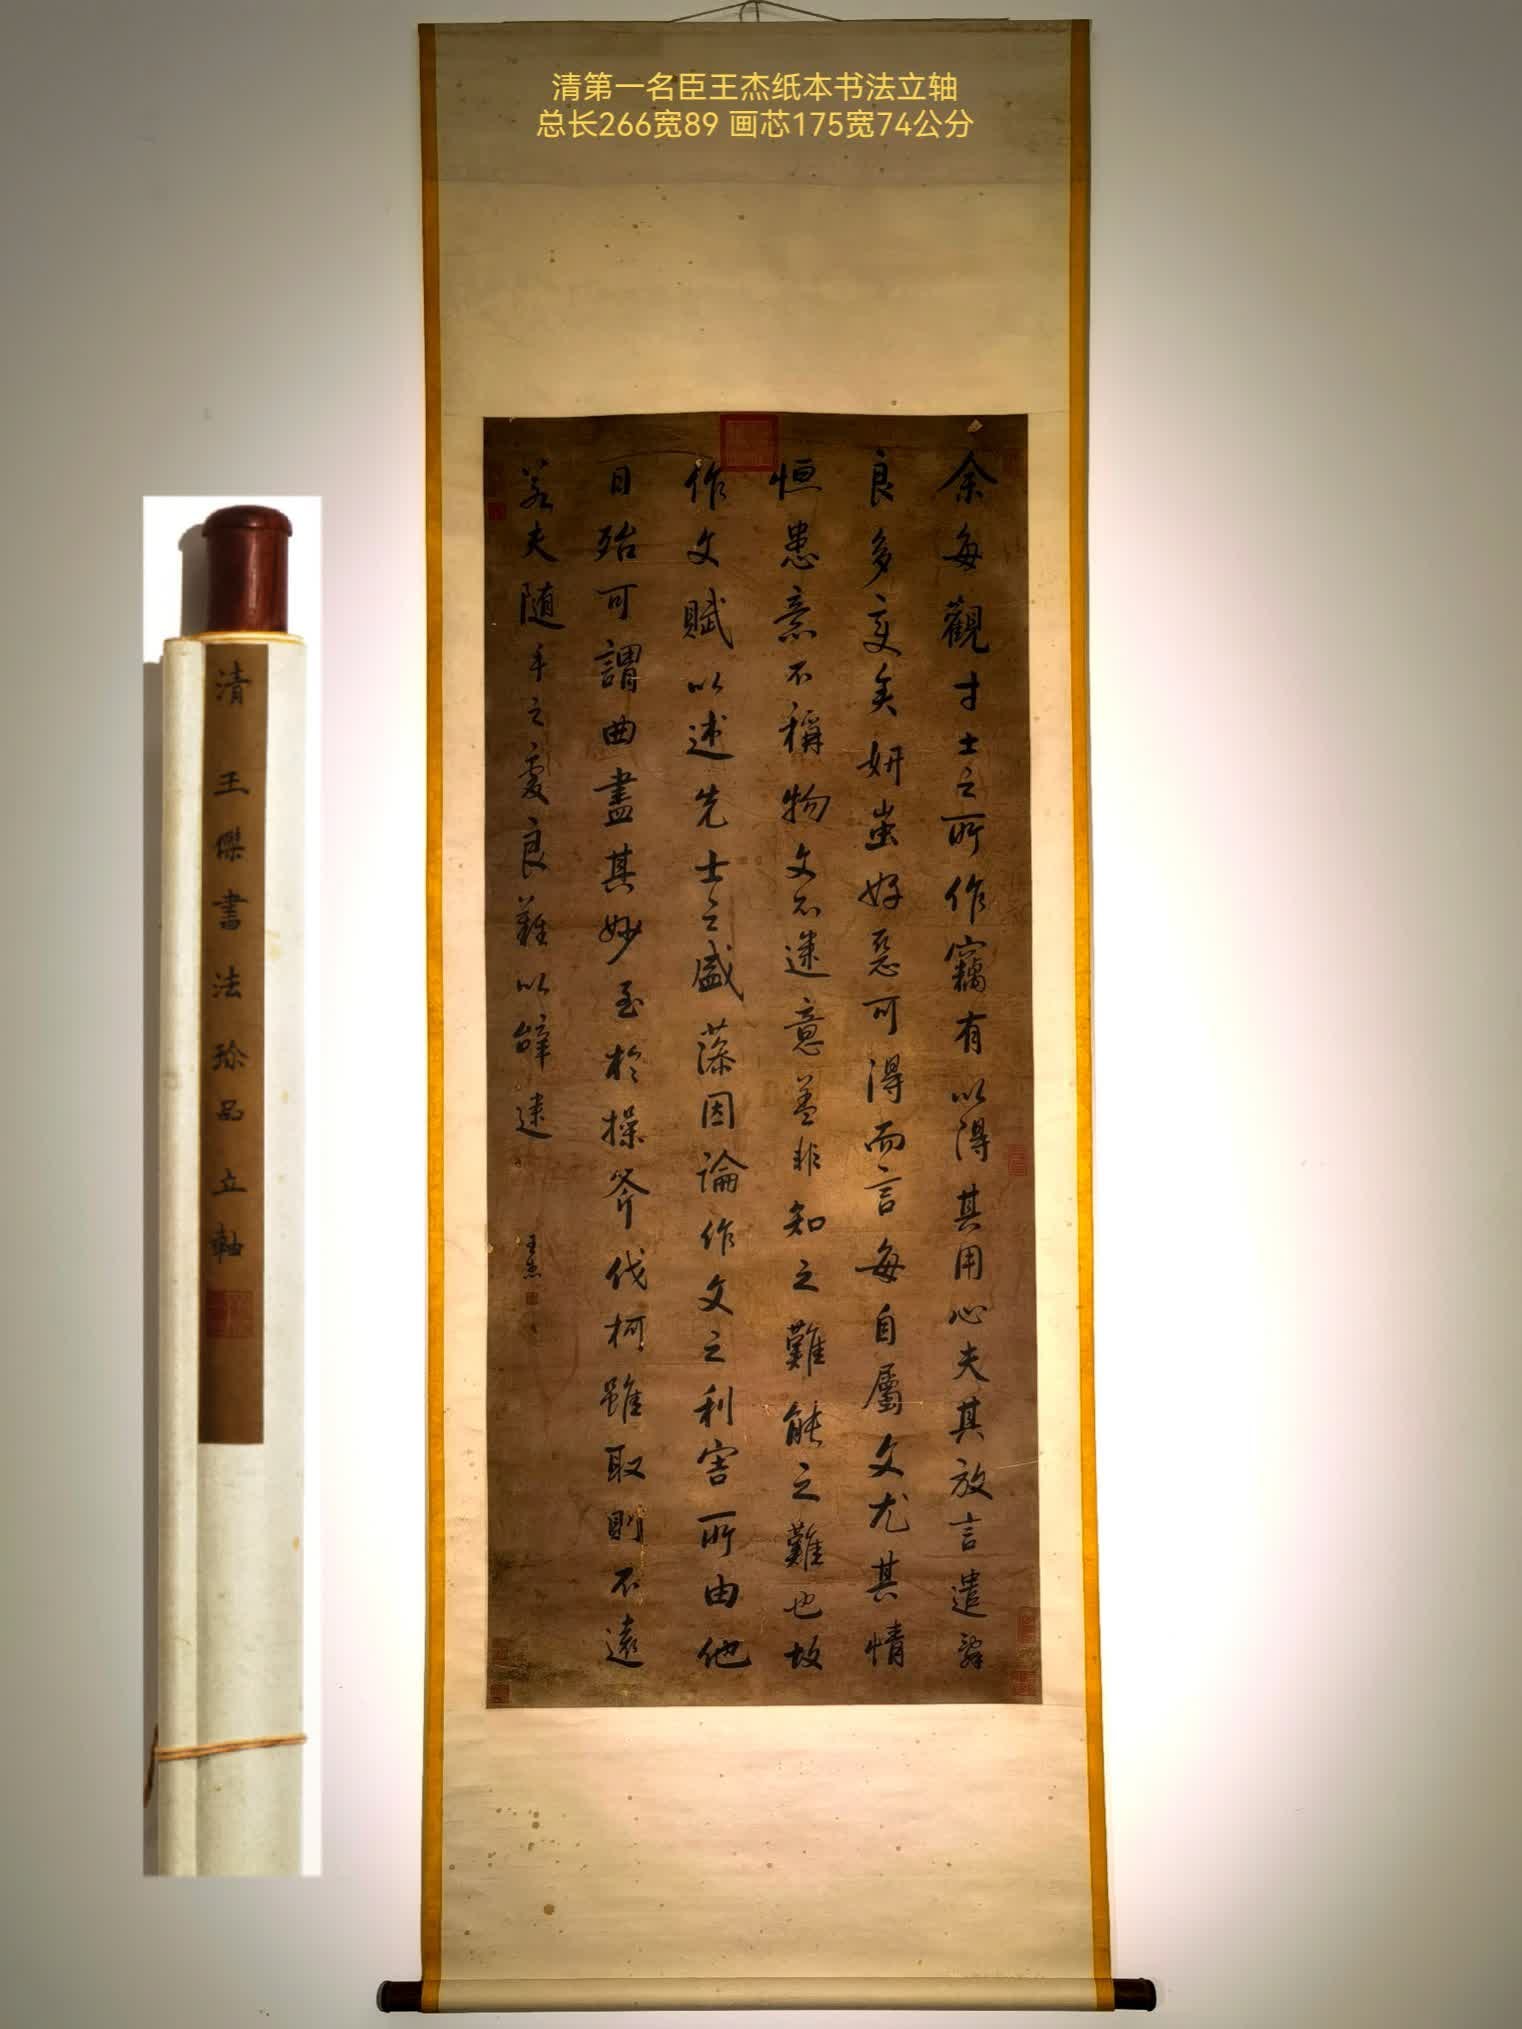 清第一名臣王杰纸本书法立轴
总长266宽89 画芯175宽74公分
余每觀才士之所作竊有以得其用心夫其放言遣辭
良多変矣妍蚩好惡可得而言每自屬文尤其情
恒患意不稱物文不逮意蓋非知之難能之難也故
作文賦以述先士之盛藻因論作文之利害所由他
日殆可謂曲盡其妙至於操斧伐柯雖取則不遠
若夫随手之變良難以辞逮
王杰
清王傑書法珍品立軸